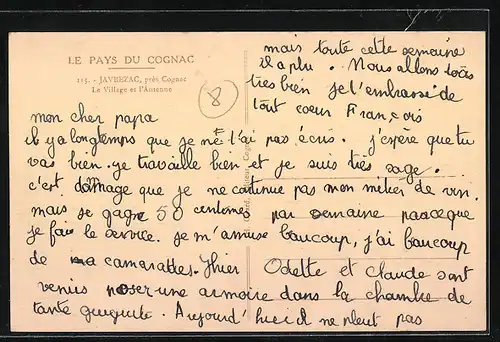 LE PAYS DU COGNAC
115. - JAVREZAC, près Cognac
Le Village et l'Antenne
8
mon cher papa
il y a longtemps que je ne t'ai pas écris. j'espère que tu
vas bien. je travaille bien et je suis très sage.
c'est dommage que je ne continue pas mon métier de vin.
mais je gagne 50 centimes par semaine parceque
je fais le service. je m'amuse beaucoup, j'ai beaucoup
de ma camarades. Yhier Odette et Claude sont
venus poser une armoire dans la chambre de
tante guiguite. Aujourd'hui il ne pleut pas
mais toute cette semaine
il a plu. Nous allons tous
très bien je t'embrasse de
tout coeur François